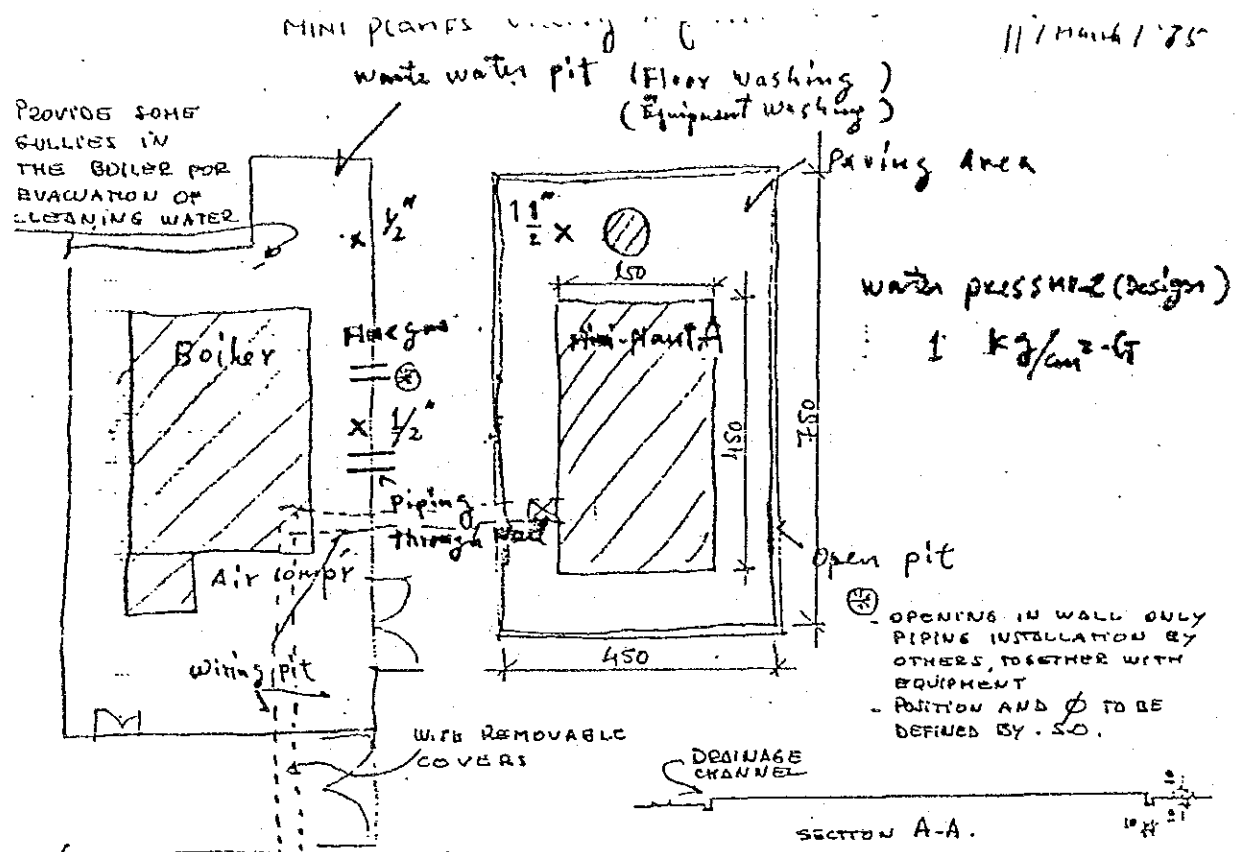 MINI PLANTS
11 / March / '85
waste water pit (Floor washing)
(Equipment washing)
PROVIDE SOME
GULLIES IN
THE BOILER FOR
EVACUATION OF
CLEANING WATER
Paving area
1/2"
1 1/2"
150
water pressure (Design)
1 kg/cm²-G
Boiler
Flue gas
Mini-Plant A
1/2"
450
750
Piping
through wall
Air compr
Open pit
OPENING IN WALL ONLY
PIPING INSTALLATION BY
OTHERS, TOGETHER WITH
EQUIPMENT
- POSITION AND Ø TO BE
DEFINED BY . SO.
450
wiring pit
WITH REMOVABLE
COVERS
DRAINAGE
CHANNEL
SECTION A-A.
10